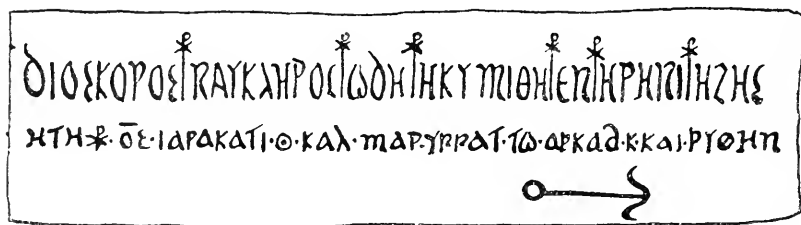 ΔΙΟΣΚΟΡΟΣΤΝΑΥΚΛΗΡΟΣΤΩΔΗΤΗΚΥΜΙΘΗΤΕΝΤΗΡΗΝΙΤΗΖΗΣ
ΗΤΗ⳩·Ο̅Σ·ΙΑΡΑΚΑΤΙ·Θ·ΚΑΛ·ΜΑΡ·ΥΠΡΑΤ·ΤΩ·ΑΡΚΑΔ·Κ·ΚΑΙ·ΡΥΘΗΝ